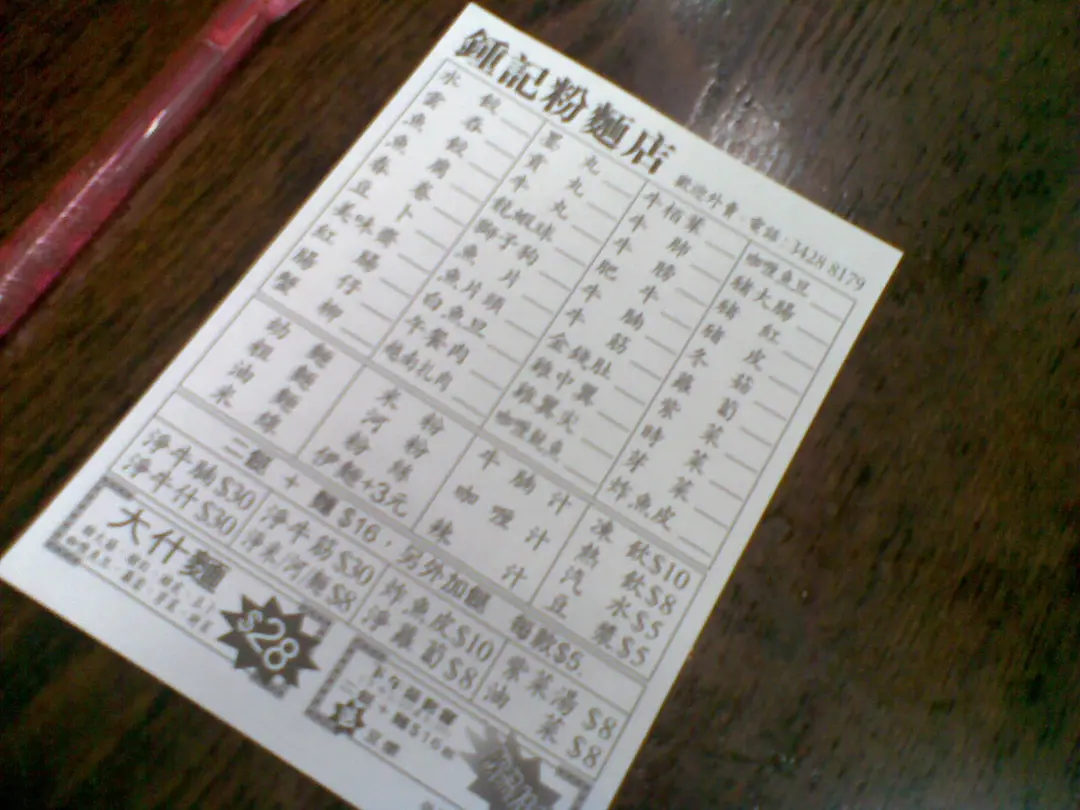 鍾記粉麵店
歡迎外賣 電話：3428 8179
水餃
雲吞
魚餃
魚
春卷
豆卜
美味齋
紅腸
腸仔
蟹柳
墨丸
貢丸
牛丸
龍蝦球
獅子狗
魚片
魚片頭
白魚旦
午餐肉
越南扎肉
牛栢葉
牛肺
牛膀
肥牛
牛腩
牛筋
金錢肚
雞中翼
雞翼尖
咖喱魷魚
咖喱魚旦
豬大腸
豬紅
豬皮
冬菇
蘿蔔
紫菜
時菜
芽菜
炸魚皮
幼麵
粗麵
油麵
米線
米粉
河粉
粉絲
伊麵+3元
牛腩汁
咖喱汁
辣汁
凍飲$10
熱飲$8
汽水$5
豆漿$5
二餸 + 麵 $16，另外加餸 每款$5.
淨牛腩$30
淨牛什$30
淨牛筋$30
淨米/河/麵$8
炸魚皮$10
淨蘿蔔$8
紫菜湯 $8
油菜 $8
大什麵
$28
二餸+麵$16
豆漿